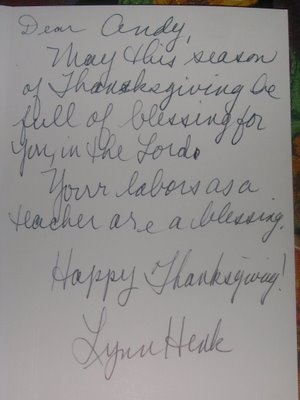 Dear Andy,
May this season
of Thanksgiving be
full of blessing for
you, in the Lord.
Your labors as a
teacher are a blessing.
Happy Thanksgiving!
Lynn Henk